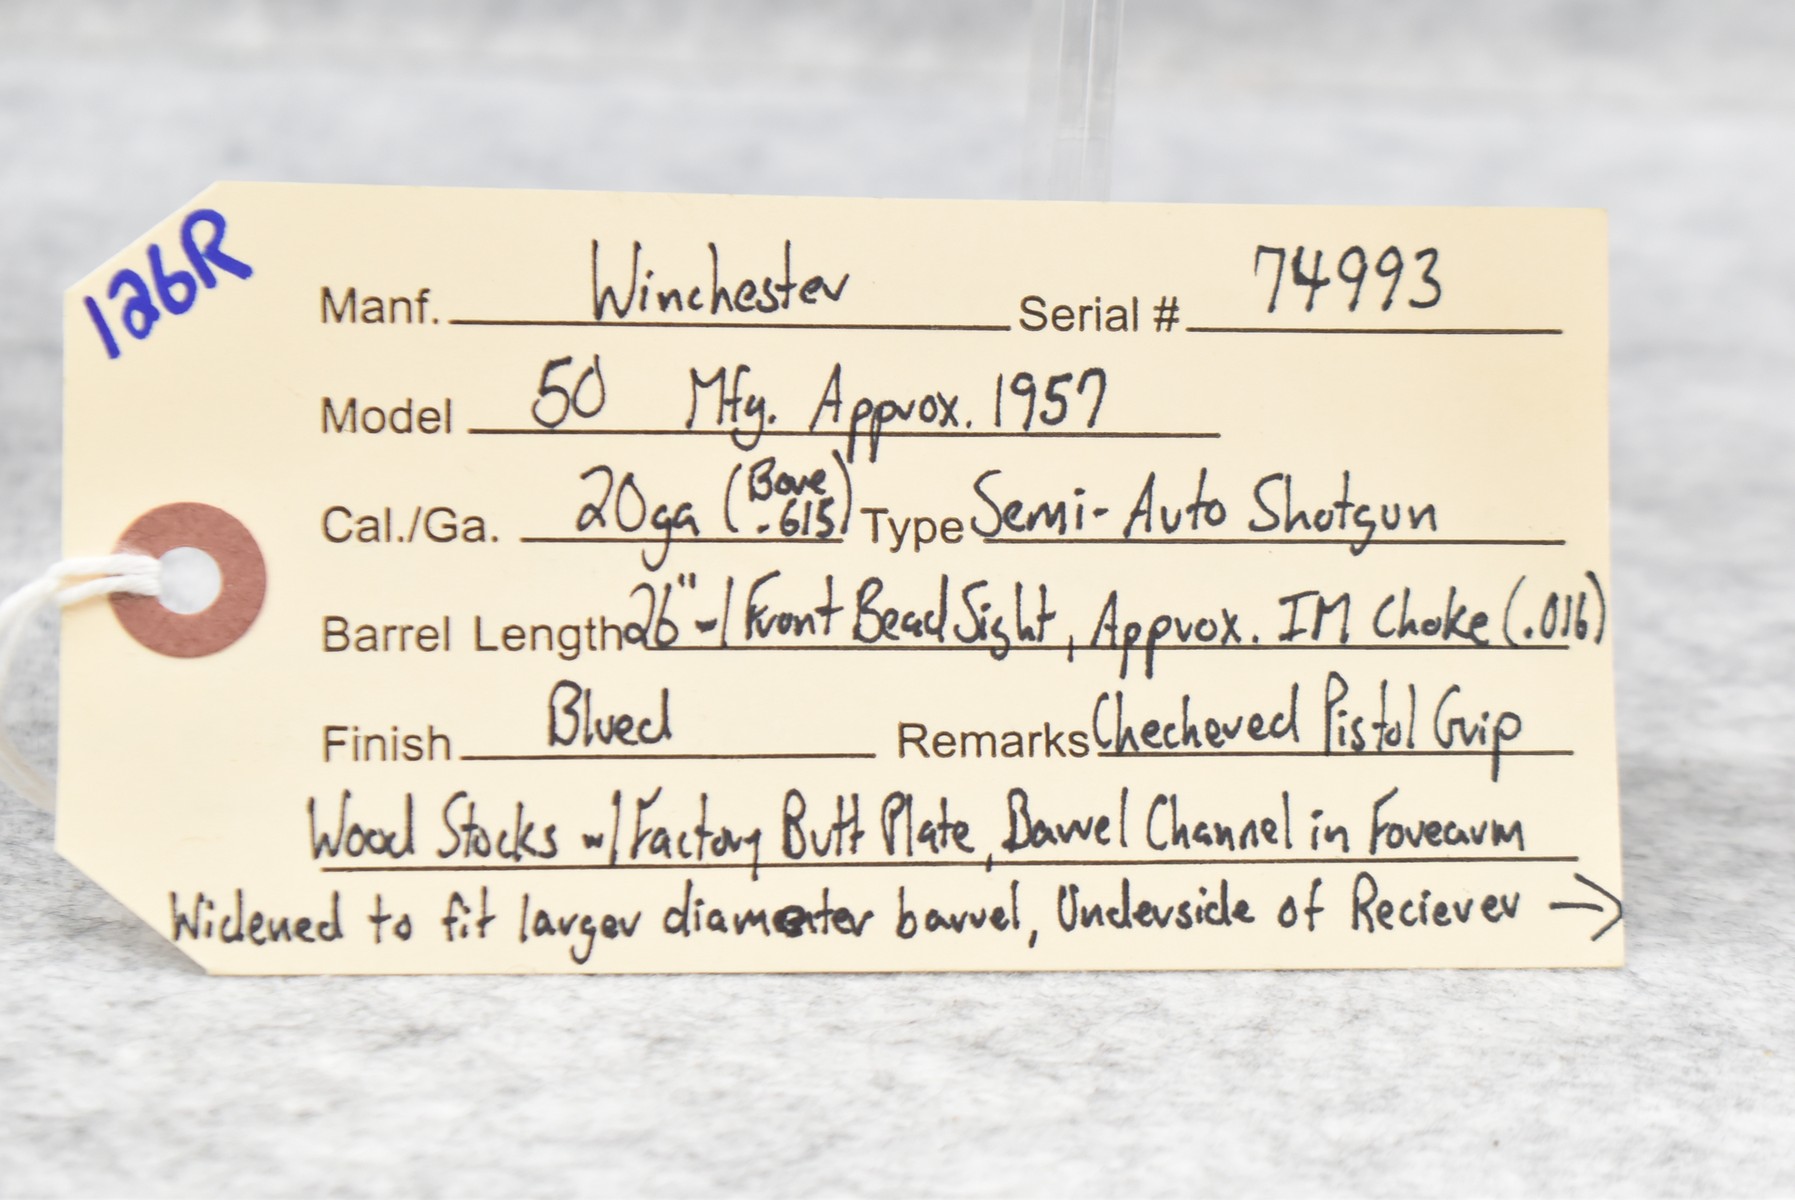 126R
Manf. Winchester Serial # 74993
Model 50 Mfg. Approx. 1957
Cal./Ga. 20ga (Bore .615) Type Semi-Auto Shotgun
Barrel Length 26" w/ Front Bead Sight, Approx. IM Choke (.016)
Finish Blued Remarks Checkered Pistol Grip
Wood Stocks w/ Factory Butt Plate, Barrel Channel in Forearm
Widened to fit larger diameter barrel, Underside of Reciever →